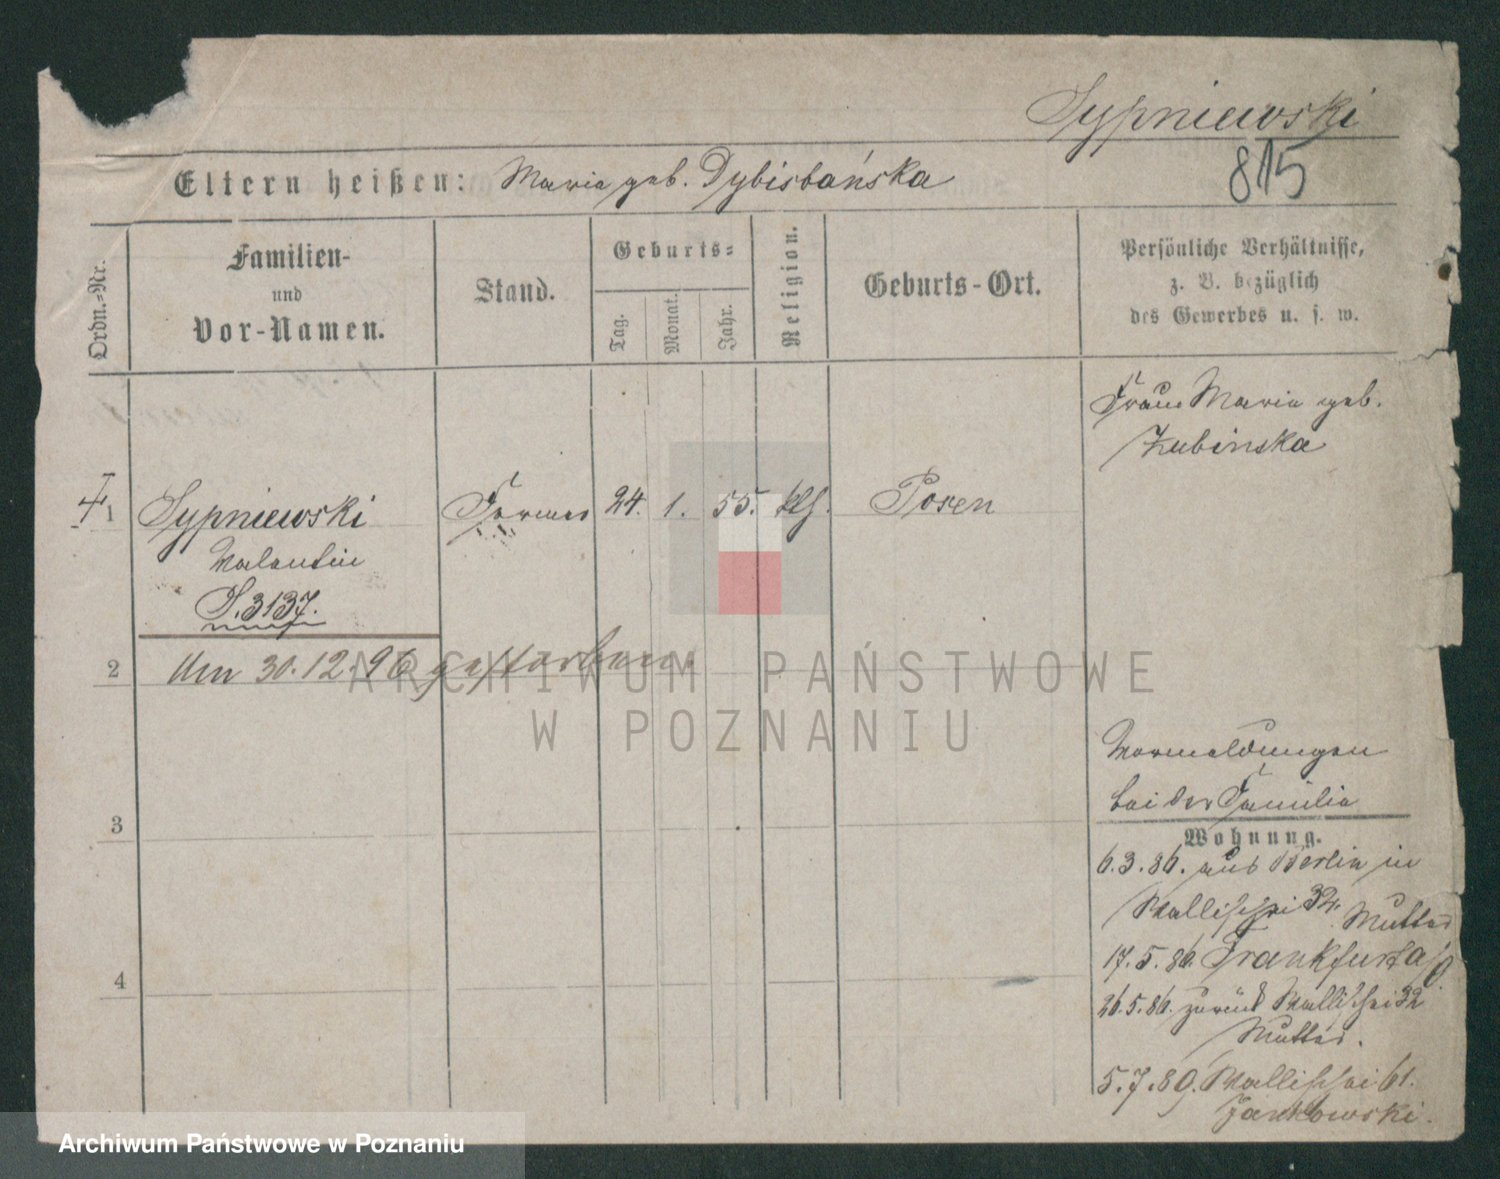 Sypniewski
815
Eltern heißen: Maria geb. Dybisbańska
Ordn.-Nr.
Familien-
und
Vor-Namen.
Stand.
Geburts-
Tag.
Monat.
Jahr.
Religion.
Geburts-Ort.
Persönliche Verhältnisse,
z. B. bezüglich
des Gewerbes u. s. w.
Frau Maria geb.
Zubinska
1 Sypniewski Former 24. 1. 55. kth. Posen
Valentin
S. 3137.
2 Am 30.12.96 gestorben.
ARCHIWUM PAŃSTWOWE
W POZNANIU
Vormeldungen
bei der Familie
3
Wohnung.
6.3.86. aus Berlin in
Wallischei 32. Mutter
17.5.86. Frankfurt a/O
4
26.5.86. zurück Wallischei 32
Mutter.
5.7.89. Wallischei 61.
Jankowski.
Archiwum Państwowe w Poznaniu